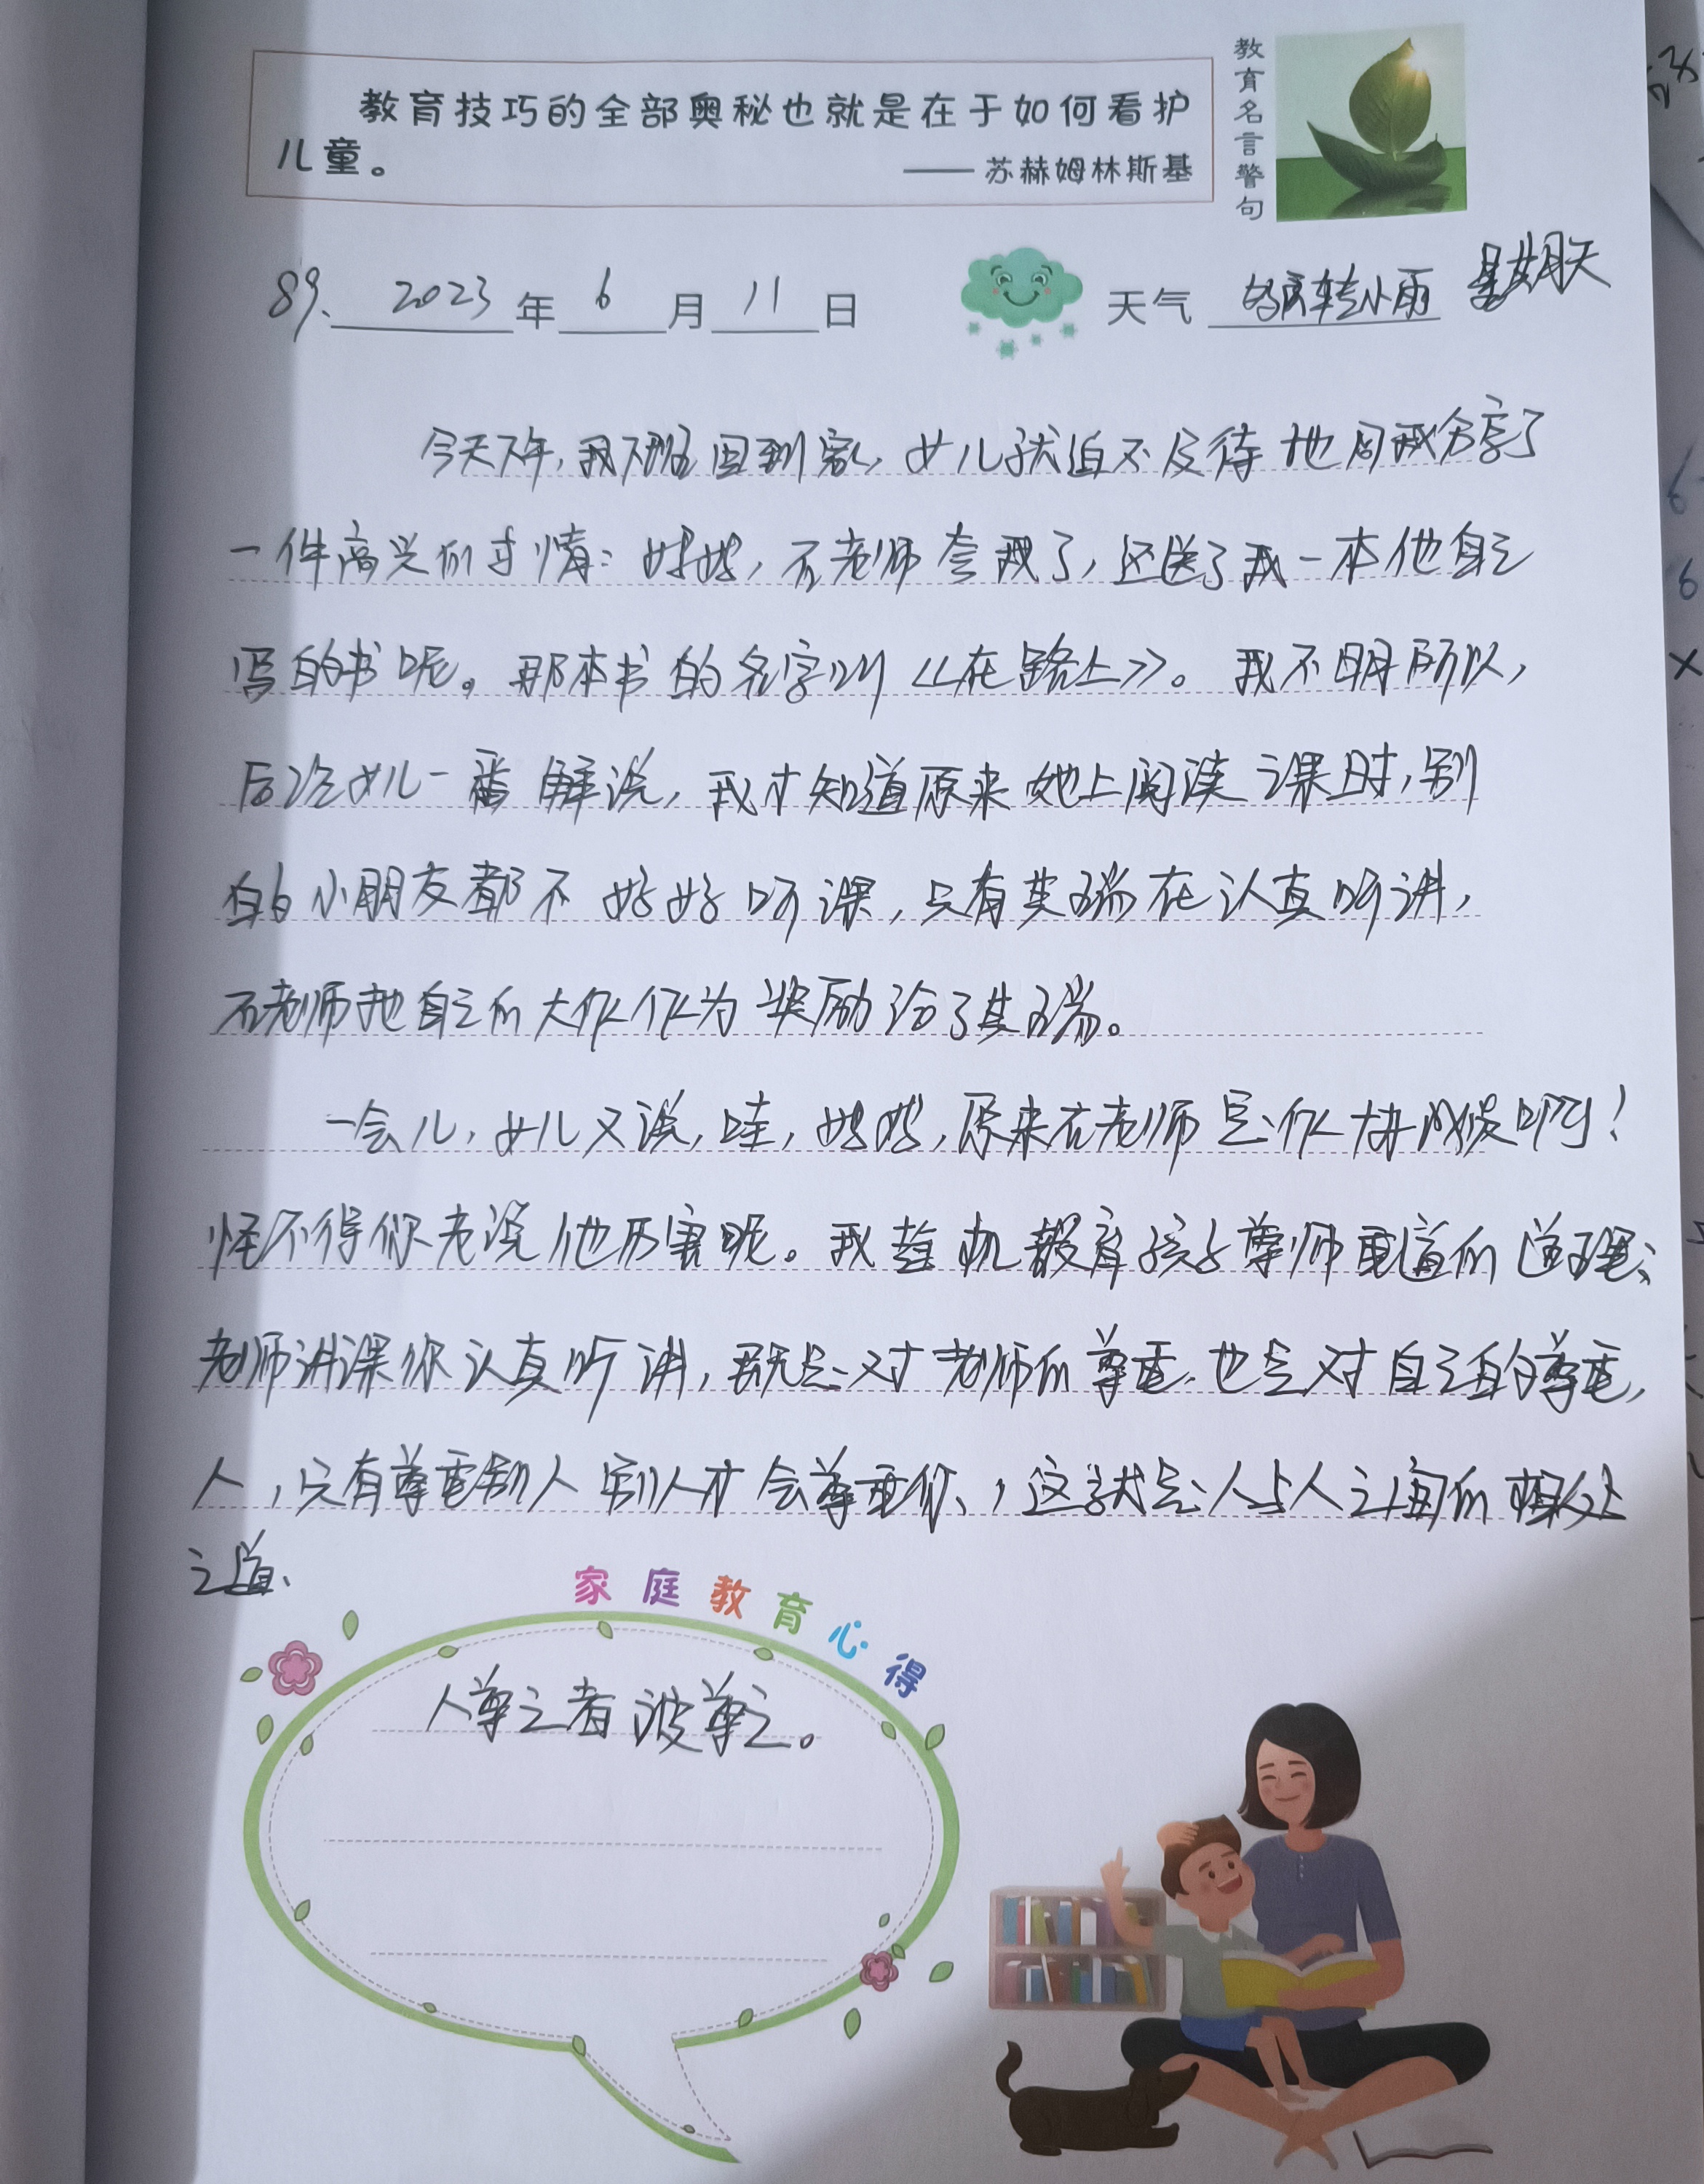 教育技巧的全部奥秘也就是在于如何看护
儿童。
——苏赫姆林斯基
教育名言警句
89. 2023年6月11日 天气 转小雨 星期天
今天下午,我下班回到家,女儿就迫不及待地同我分享了
一件高兴的事情:妈妈,石老师夸我了,还送了我一本他自己
写的书呢。那本书的名字叫《在路上》。我不明所以,
后经女儿一番解说,我才知道原来她上阅读课时,别
的小朋友都不好好听课,只有英瑞在认真听讲,
石老师把自己的大作作为奖励给了英瑞。
一会儿,女儿又说,哇,妈妈,原来石老师是作协成员啊!
怪不得你老说他厉害呢。我趁机教育孩子尊师重道的道理:
老师讲课你认真听讲,既是对老师的尊重,也是对自己的尊重,
人,只有尊重别人别人才会尊重你,这就是人与人之间的相处
之道、
家庭教育心得
人尊之者波尊之。